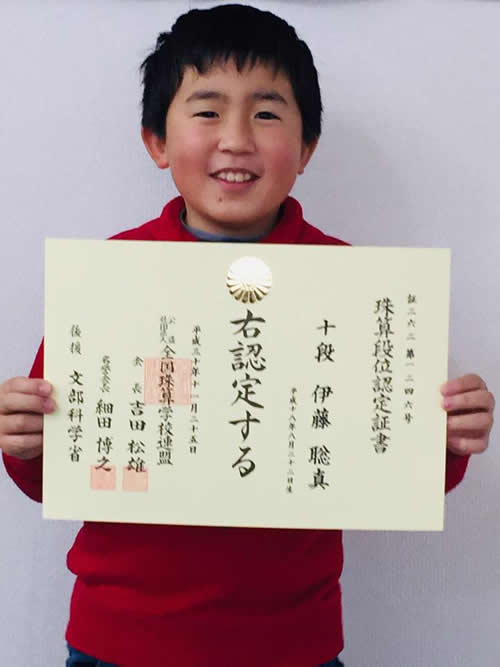 証三六二第一二四六号
珠算段位認定証書
十段 伊藤聡真
平成十八年八月二十二日生
右認定する
平成三十年十一月二十五日
公益社団法人 全国珠算学校連盟
会長 吉田松雄
名誉会長 細田博之
後援 文部科学省